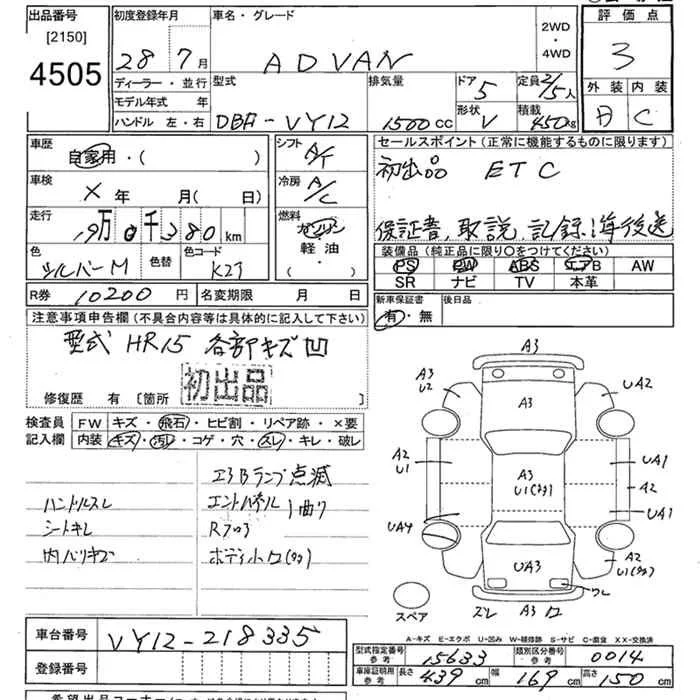 出品番号
[2150]
4505
初度登録年月
28 7月
車名・グレード
ADVAN
2WD
・
4WD
評価点
3
外装 内装
B C
ディーラー・並行
モデル年式 年
ハンドル 左・右
型式
DBF-VY12
排気量
1500cc
ドア
5
形状
V
定員
2/5人
積載
450kg
車歴
自家用・( )
車検
× 年 月( 日)
走行
19万0千380km
色
シルバーM
色替
色コード
K23
シフト
A/T
冷房
A/C
燃料
ガソリン
軽油
( ・ )
セールスポイント(正常に機能するものに限ります)
初出品 ETC
保証書、取説、記録、1年後送
装備品(純正品に限り〇をつけてください)
PS PW ABS エアB AW
SR ナビ TV 本革
R券 10200円
名変期限 月 日
新車保証書
有・無
後日品
注意事項申告欄(不具合内容等は具体的に記入して下さい)
型式 HR15 各部キズ凹
初出品
修復歴 有 [箇所 ]
検査員
記入欄
FW キズ・飛石・ヒビ割・リペア跡・×要
内装 キズ・汚レ・コゲ・穴・スレ・キレ・破レ
エアBランプ点滅
ハンドルスレ
エンドパネル 曲り
シートキレ
Rフロア
内バリキズ
ボディ小ワ(多)
A3
A3
U2
UA2
A3
A2
U1
A3
U1(多)
UA1
A2
UA1
UA4
UA3
A2
U1(多)
ワレ
スペア
ズレ A3 ワ
A-キズ E-エクボ U-凹み W-補修跡 S-サビ C-腐食 XX-交換済
車台番号
VY12-218335
登録番号
型式指定番号
参考
15633
類別区分番号
参考
0014
車庫証明用
参考
長さ 439cm
幅 169cm
高さ 150cm